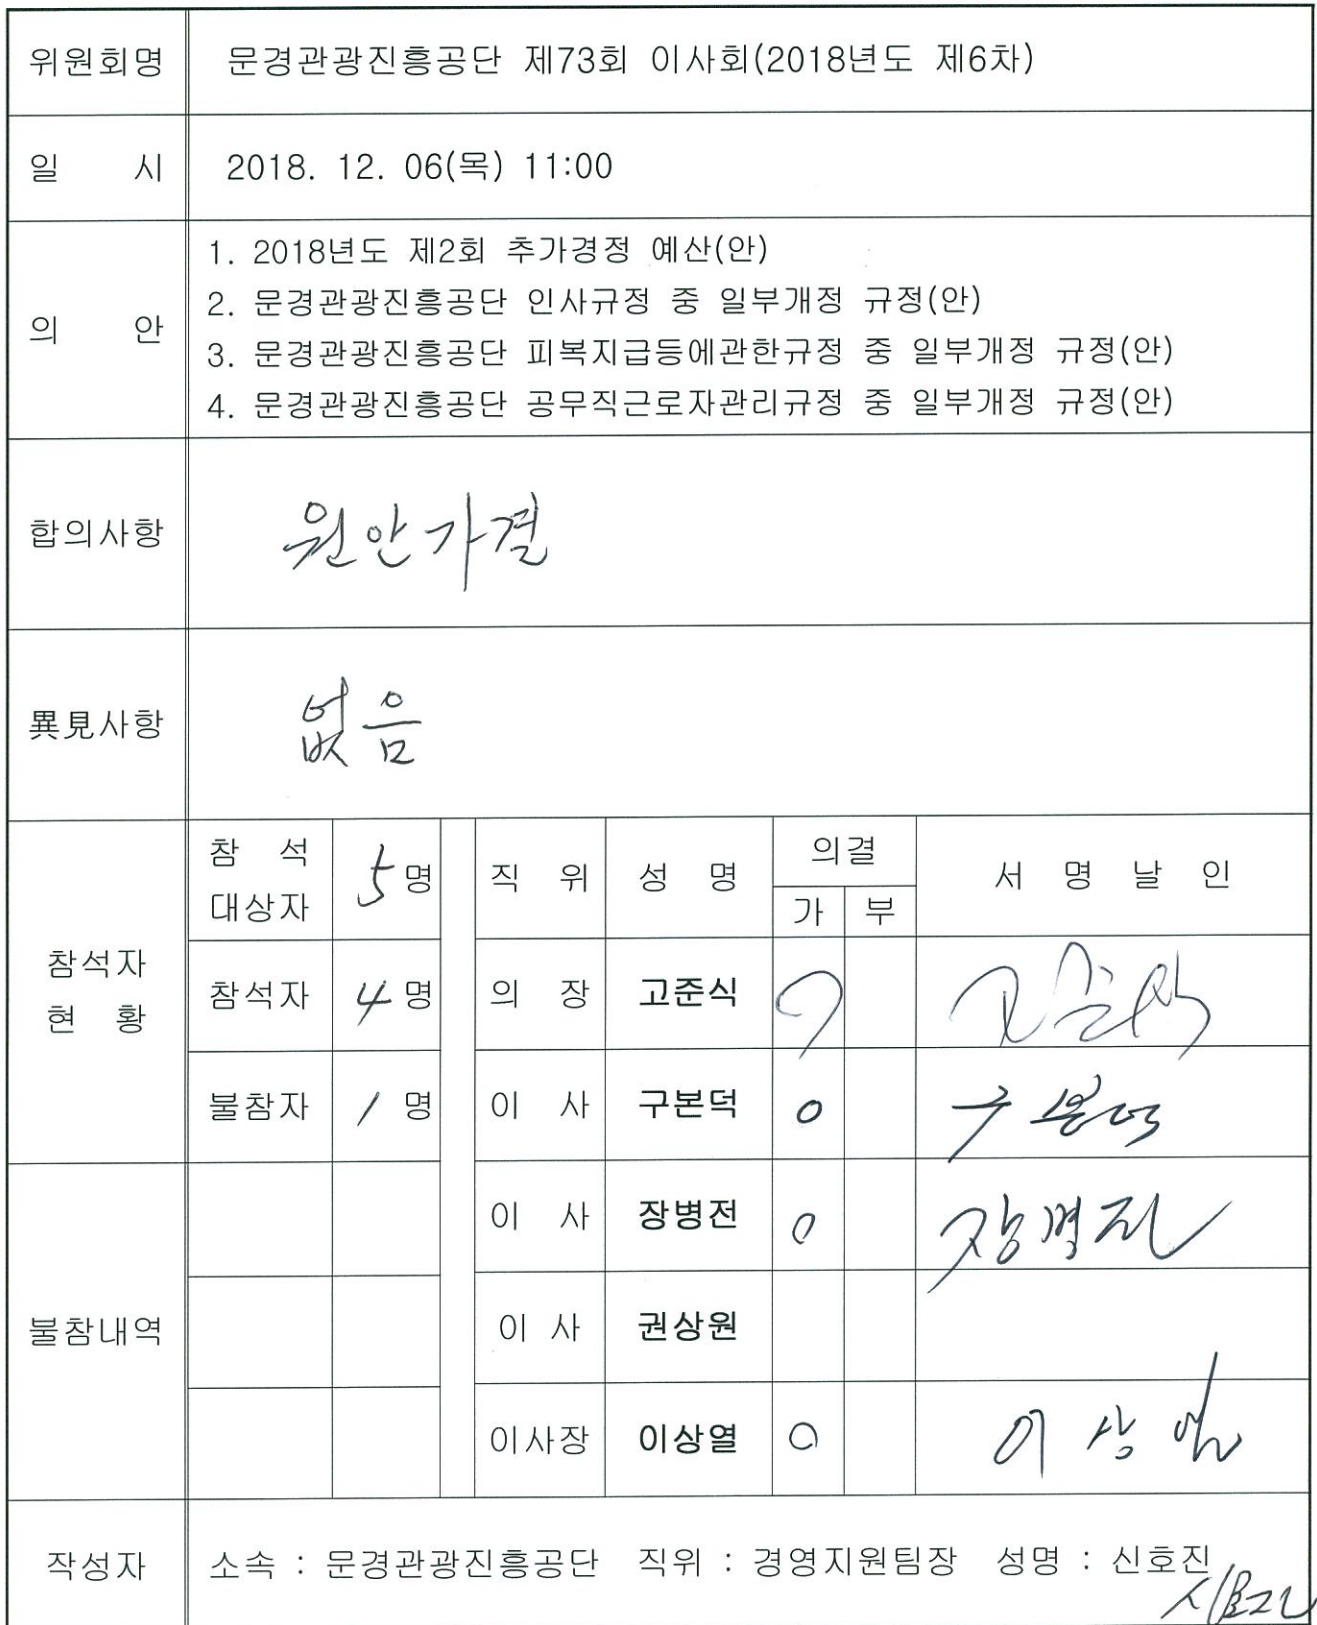 위원회명 문경관광진흥공단 제73회 이사회(2018년도 제6차)
일 시 2018. 12. 06(목) 11:00
의 안
1. 2018년도 제2회 추가경정 예산(안)
2. 문경관광진흥공단 인사규정 중 일부개정 규정(안)
3. 문경관광진흥공단 피복지급등에관한규정 중 일부개정 규정(안)
4. 문경관광진흥공단 공무직근로자관리규정 중 일부개정 규정(안)
합의사항 원안가결
異見사항 없음
참석자
현 황
참 석
대상자 5명
참석자 4명
불참자 1명
불참내역
직 위 성 명 의결 서 명 날 인
가 부
의 장 고준식 고준식
이 사 구본덕 0 구본덕
이 사 장병전 0 장병전
이 사 권상원
이사장 이상열 0 이상열
작성자 소속 : 문경관광진흥공단 직위 : 경영지원팀장 성명 : 신호진